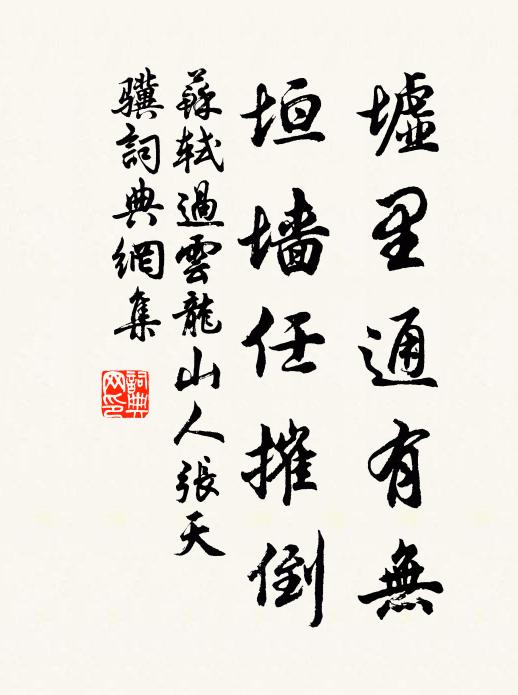 墟里通有無
垣墻任摧倒
蘇軾過雲龍山人張天
驥詞典網集
詞典
网印